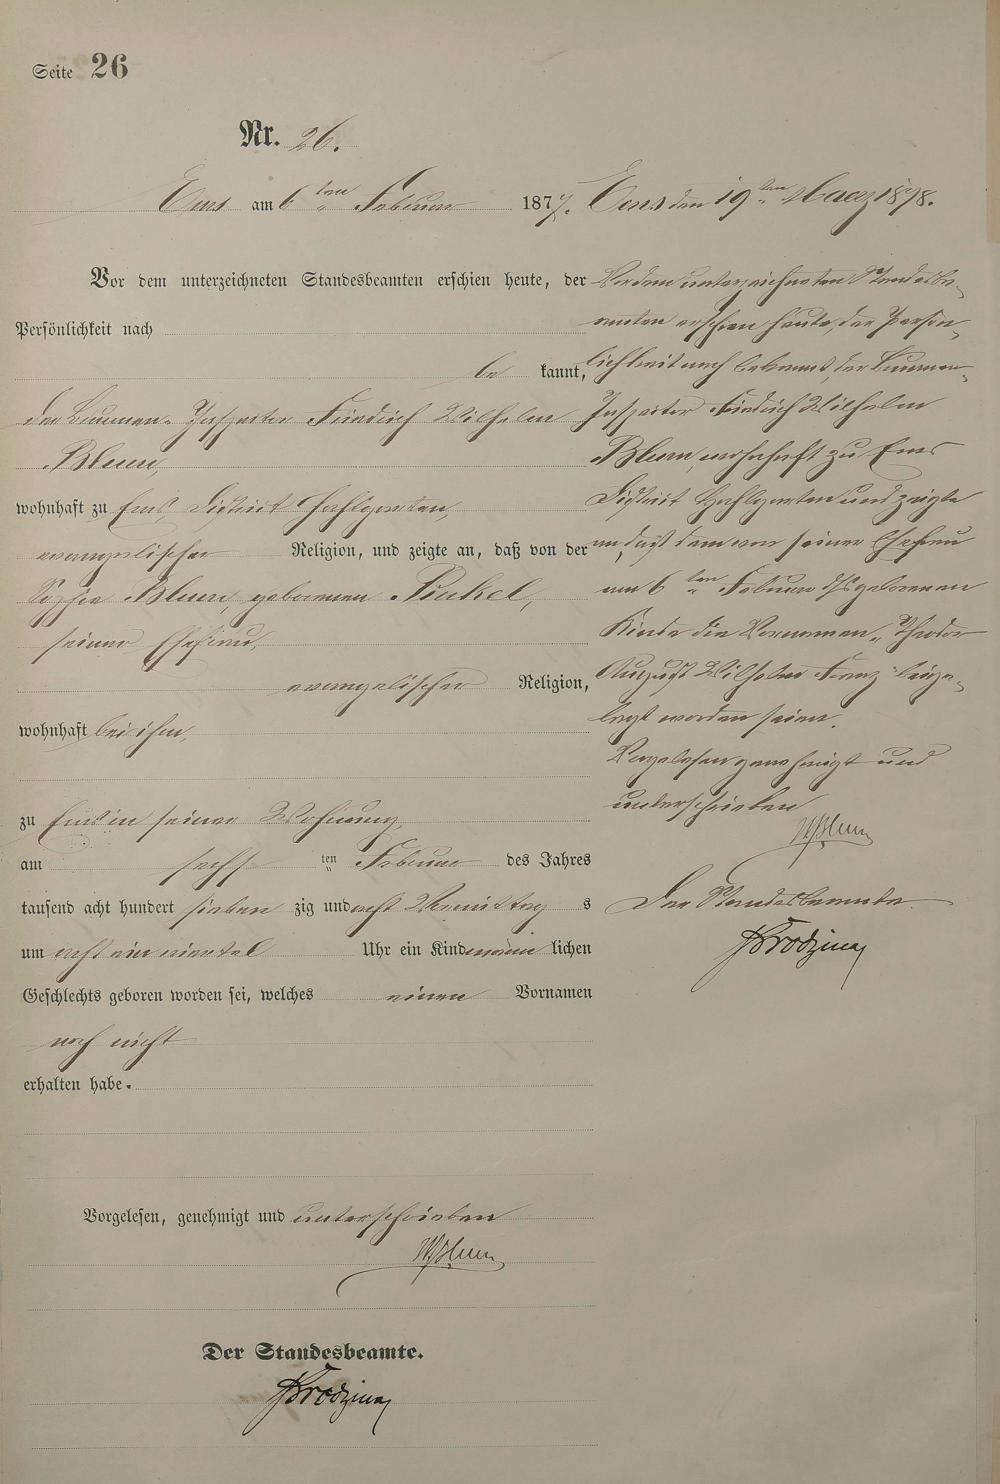 Seite 26
Nr. 26.
Ems am 6ten Februar 1878.
Vor dem unterzeichneten Standesbeamten erschien heute, der
Persönlichkeit nach
be kannt,
der Brunnen-Inspector Friedrich Wilhelm
Blum,
wohnhaft zu Ems, District
evangelischer Religion, und zeigte an, daß von der
Sophie Blum, geborenen
seiner Ehefrau,
evangelischer Religion,
wohnhaft bei ihm,
zu Ems in seiner Wohnung
am sechsten Februar des Jahres
tausend acht hundert sieben zig und acht Vormittags
um acht ein viertel Uhr ein Kind männlichen
Geschlechts geboren worden sei, welches einen Vornamen
noch nicht
erhalten habe.
Vorgelesen, genehmigt und unterschrieben
W Blum
Der Standesbeamte.
Ems den 19ten Maerz 1878.
Vor dem unterzeichneten Standesbe-
amten erschien heute, der Person-
lichkeit nach bekannt, der Brunnen-
Inspector Friedrich Wilhelm
Blum, wohnhaft zu Ems
District und zeigte
an, daß dem von seiner Ehefrau
am 6ten Februar geborenen
Kinde die Vornamen „Theodor
August Wilhelm Franz" beige-
legt worden seien.
Vorgelesen genehmigt und
unterschrieben
W Blum
Der Standesbeamte